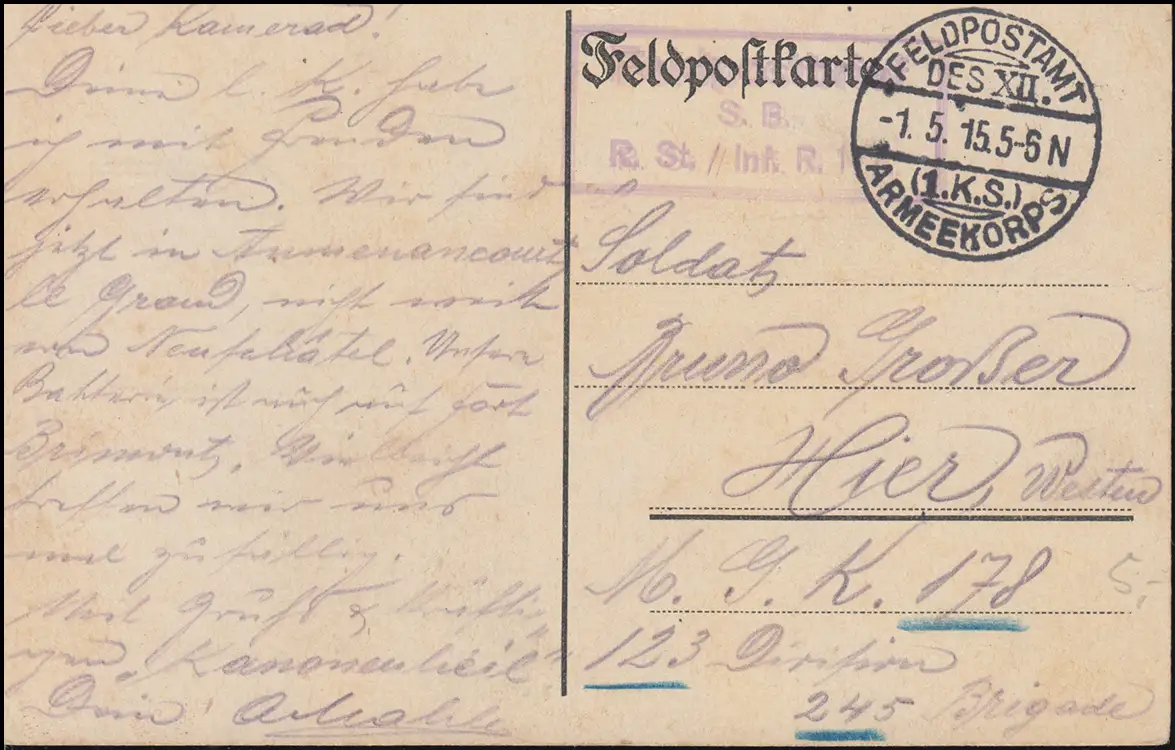 Lieber Kamerad!
Deine l. K. habe
ich mit Freuden
erhalten. Wir sind
jetzt in Aumenancourt
le Grand, nicht weit
von Neufchâtel. Unsere
Batterie ist auch auf Fort
Brimont. Vielleicht
treffen wir uns
mal zufällig.
Mit Gruß & kräfti-
gem „Kanonenheil"
Dein
Feldpostkarte
S. B.
R. St. / Inf. R.
FELDPOSTAMT
DES XII.
-1. 5. 15. 5-6 N
(1.K.S.)
ARMEEKORPS
Soldatz
Bruno Großer
Hier, Westen
M. G. K. 178
5,-
123 Division
245 Brigade